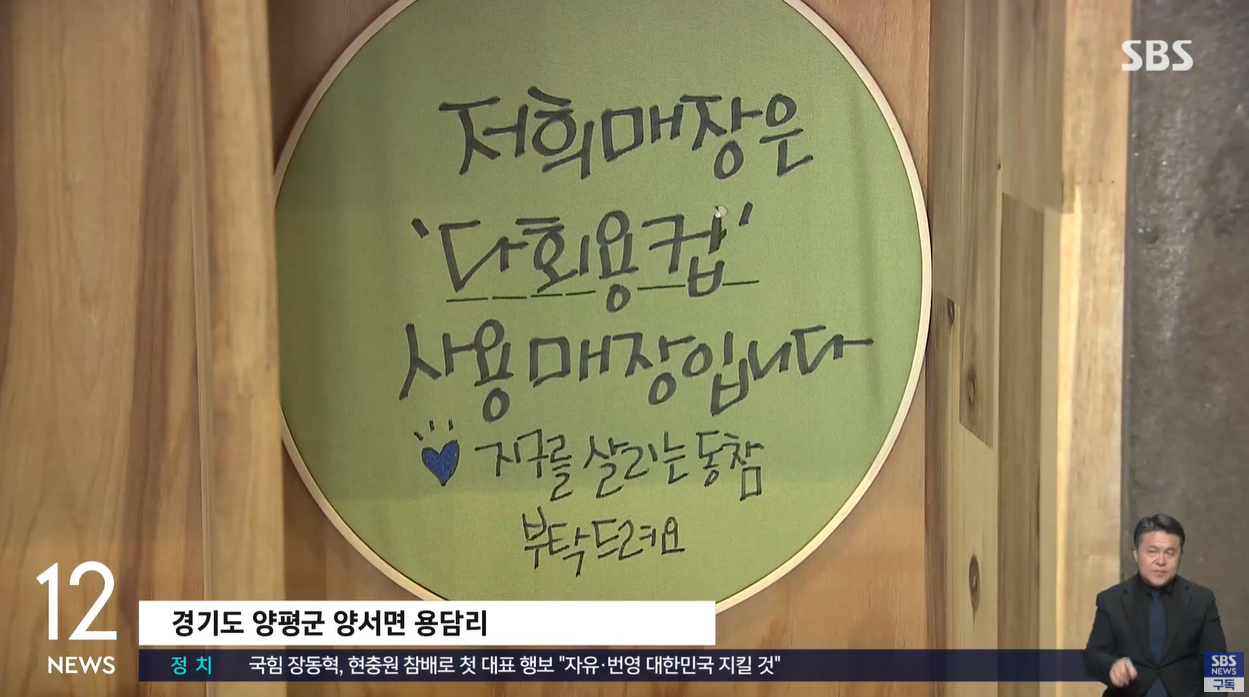 SBS
저희 매장은
'다회용컵'
사용 매장입니다
지구를 살리는 동참
부탁드려요
12
NEWS
경기도 양평군 양서면 용담리
정치 국힘 장동혁, 현충원 참배로 첫 대표 행보 "자유·번영 대한민국 지킬 것"
SBS
NEWS
구독